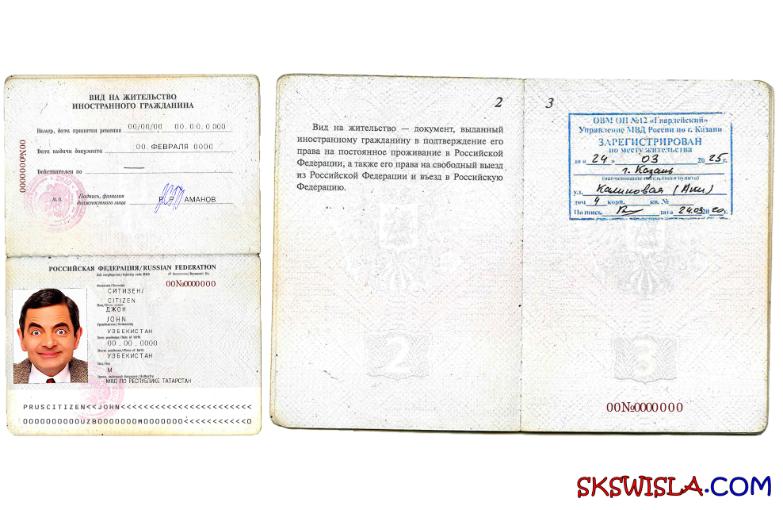 ВИД НА ЖИТЕЛЬСТВО
ИНОСТРАННОГО ГРАЖДАНИНА
Номер, дата принятия решения 00/00/00 00.0.0000
Дата выдачи документа 00. ФЕВРАЛЯ 0000
Действителен по
М.П.
Подпись, фамилия
должностного лица
АМАНОВ
РОССИЙСКАЯ ФЕДЕРАЦИЯ/RUSSIAN FEDERATION
00№0000000
СИТИЗЕН/
CITIZEN
ДЖОН/
JOHN
УЗБЕКИСТАН
00.00.0000
УЗБЕКИСТАН
М
МВД ПО РЕСПУБЛИКЕ ТАТАРСТАН
2
Вид на жительство — документ, выданный
иностранному гражданину в подтверждение его
права на постоянное проживание в Российской
Федерации, а также его права на свободный выезд
из Российской Федерации и въезд в Российскую
Федерацию.
2
3
ОВМ ОП №12 «Гвардейский»
Управление МВД России по г. Казани
ЗАРЕГИСТРИРОВАН
по месту жительства
24 03 2025г.
г. Казань
ул. Калиновая
дом 4 корп. кв. №
Подпись дата 24.03.2020г.
3
00№0000000
SKSWISLA.COM